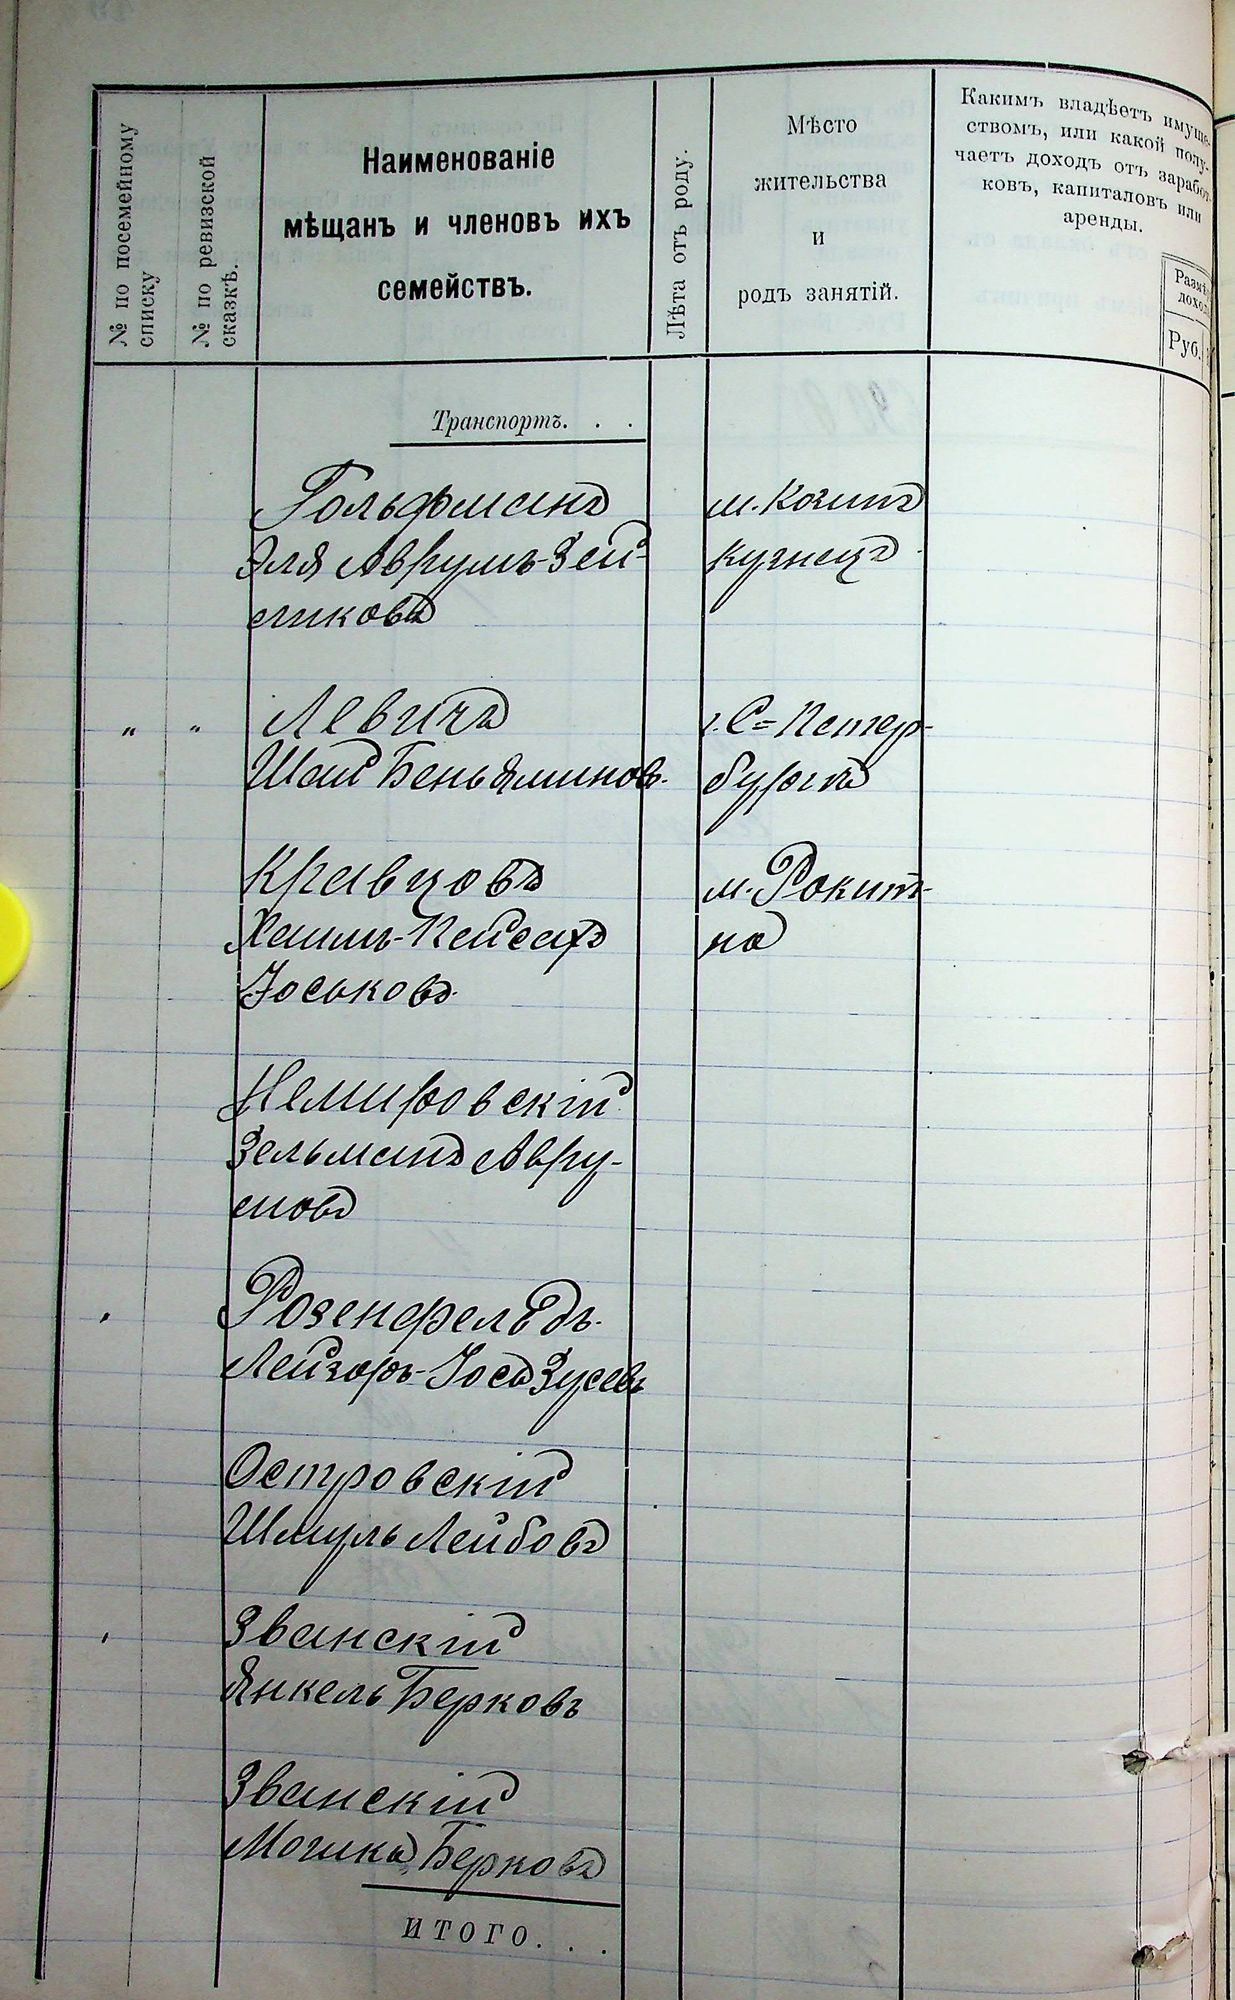 № по посемейному
списку
№ по ревизской
сказкѣ.
Наименованіе
мѣщанъ и членовъ ихъ
семействъ.
Лѣта отъ роду.
Мѣсто
жительства
и
родъ занятій.
Какимъ владѣетъ имуще-
ствомъ, или какой полу-
чаетъ доходъ отъ заработ-
ковъ, капиталовъ или
аренды.
Размѣ
дохо
Руб.
Транспортъ. . .
Гольфманъ
м. Козинъ
Эля Аврумъ-Зей-
кузнецъ
ликовъ
„ „ Левичъ
г. С=Петер-
Шая Беньяминовъ.
бургъ
Кравцовъ
м. Рокит-
Хаимъ-Пейсахъ
на
Іоськовъ.
Немировскій
Зельманъ Авру-
мовъ
Розенфельдъ.
Лейзоръ-Іось Зусевъ
Островскій
Шмуль Лейбовъ
Званскій
Янкель Берковъ
Званскій
Мошка Берковъ
ИТОГО. . .